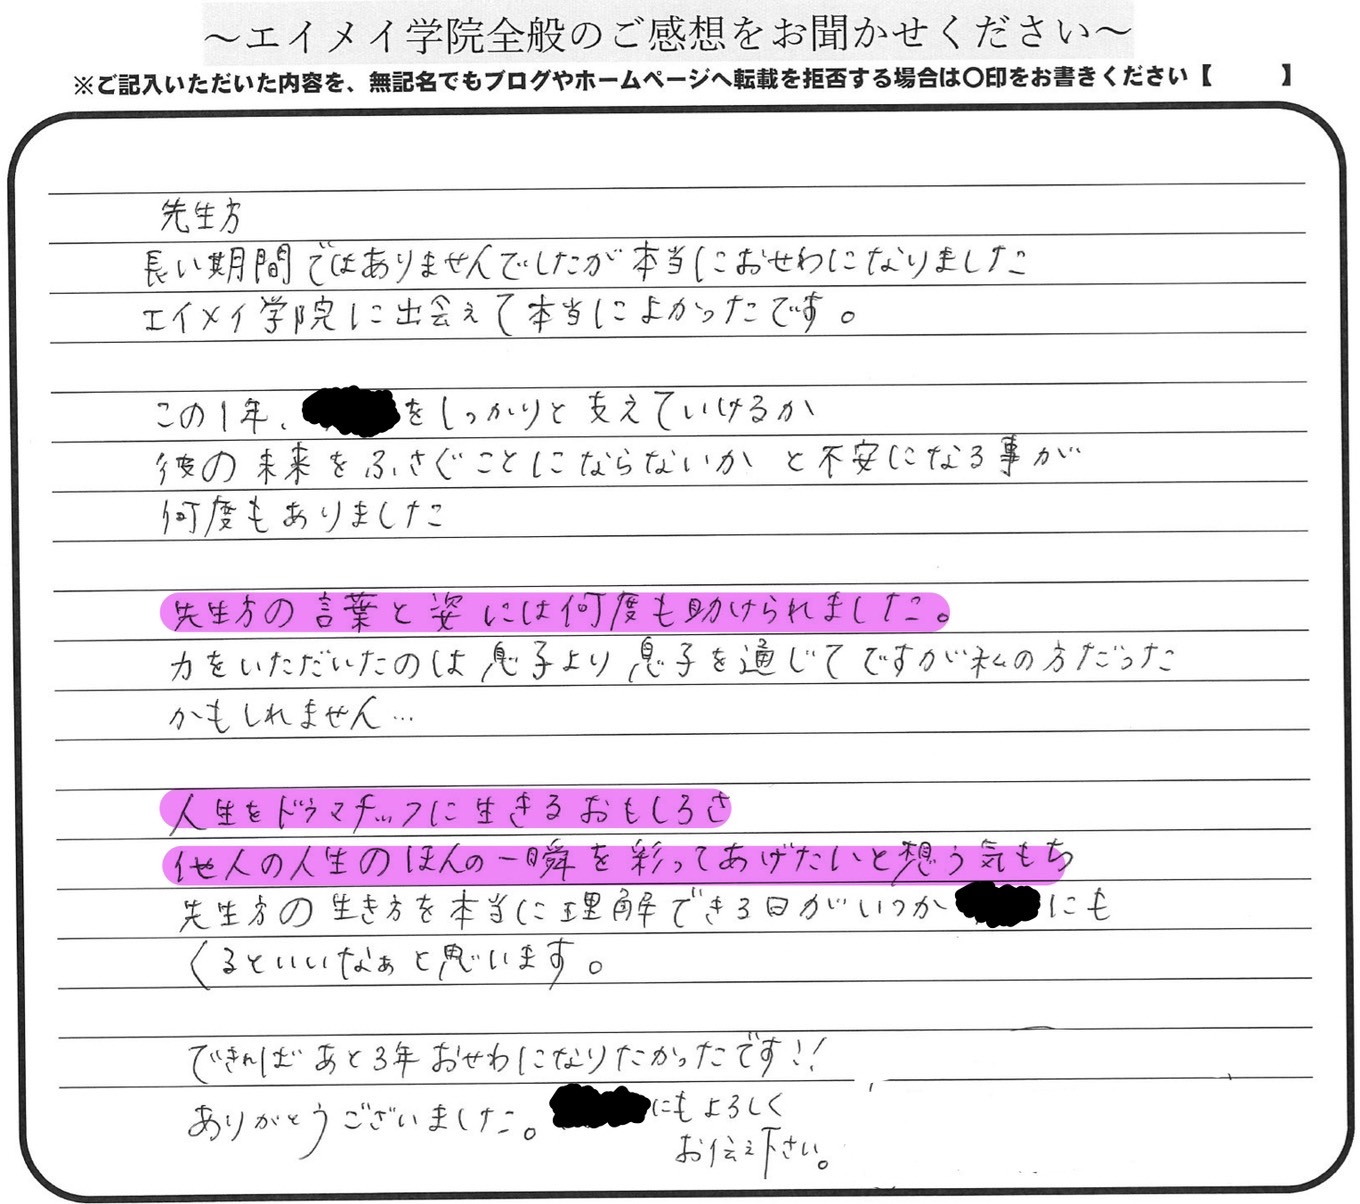 ～エイメイ学院全般のご感想をお聞かせください～
※ご記入いただいた内容を、無記名でもブログやホームページへ転載を拒否する場合は〇印をお書きください【　　】
先生方
長い期間ではありませんでしたが本当におせわになりました
エイメイ学院に出会えて本当によかったです。
この1年、をしっかりと支えていけるか
彼の未来をふさぐことにならないか と不安になる事が
何度もありました
先生方の言葉と姿には何度も助けられました。
力をいただいたのは息子より息子を通じてですが私の方だった
かもしれません…
人生をドラマチックに生きるおもしろさ
他人の人生のほんの一瞬を彩ってあげたいと想う気もち
先生方の生き方を本当に理解できる日がいつかにも
くるといいなぁと思います。
できればあと3年おせわになりたかったです!!
ありがとうございました。にもよろしく
お伝え下さい。